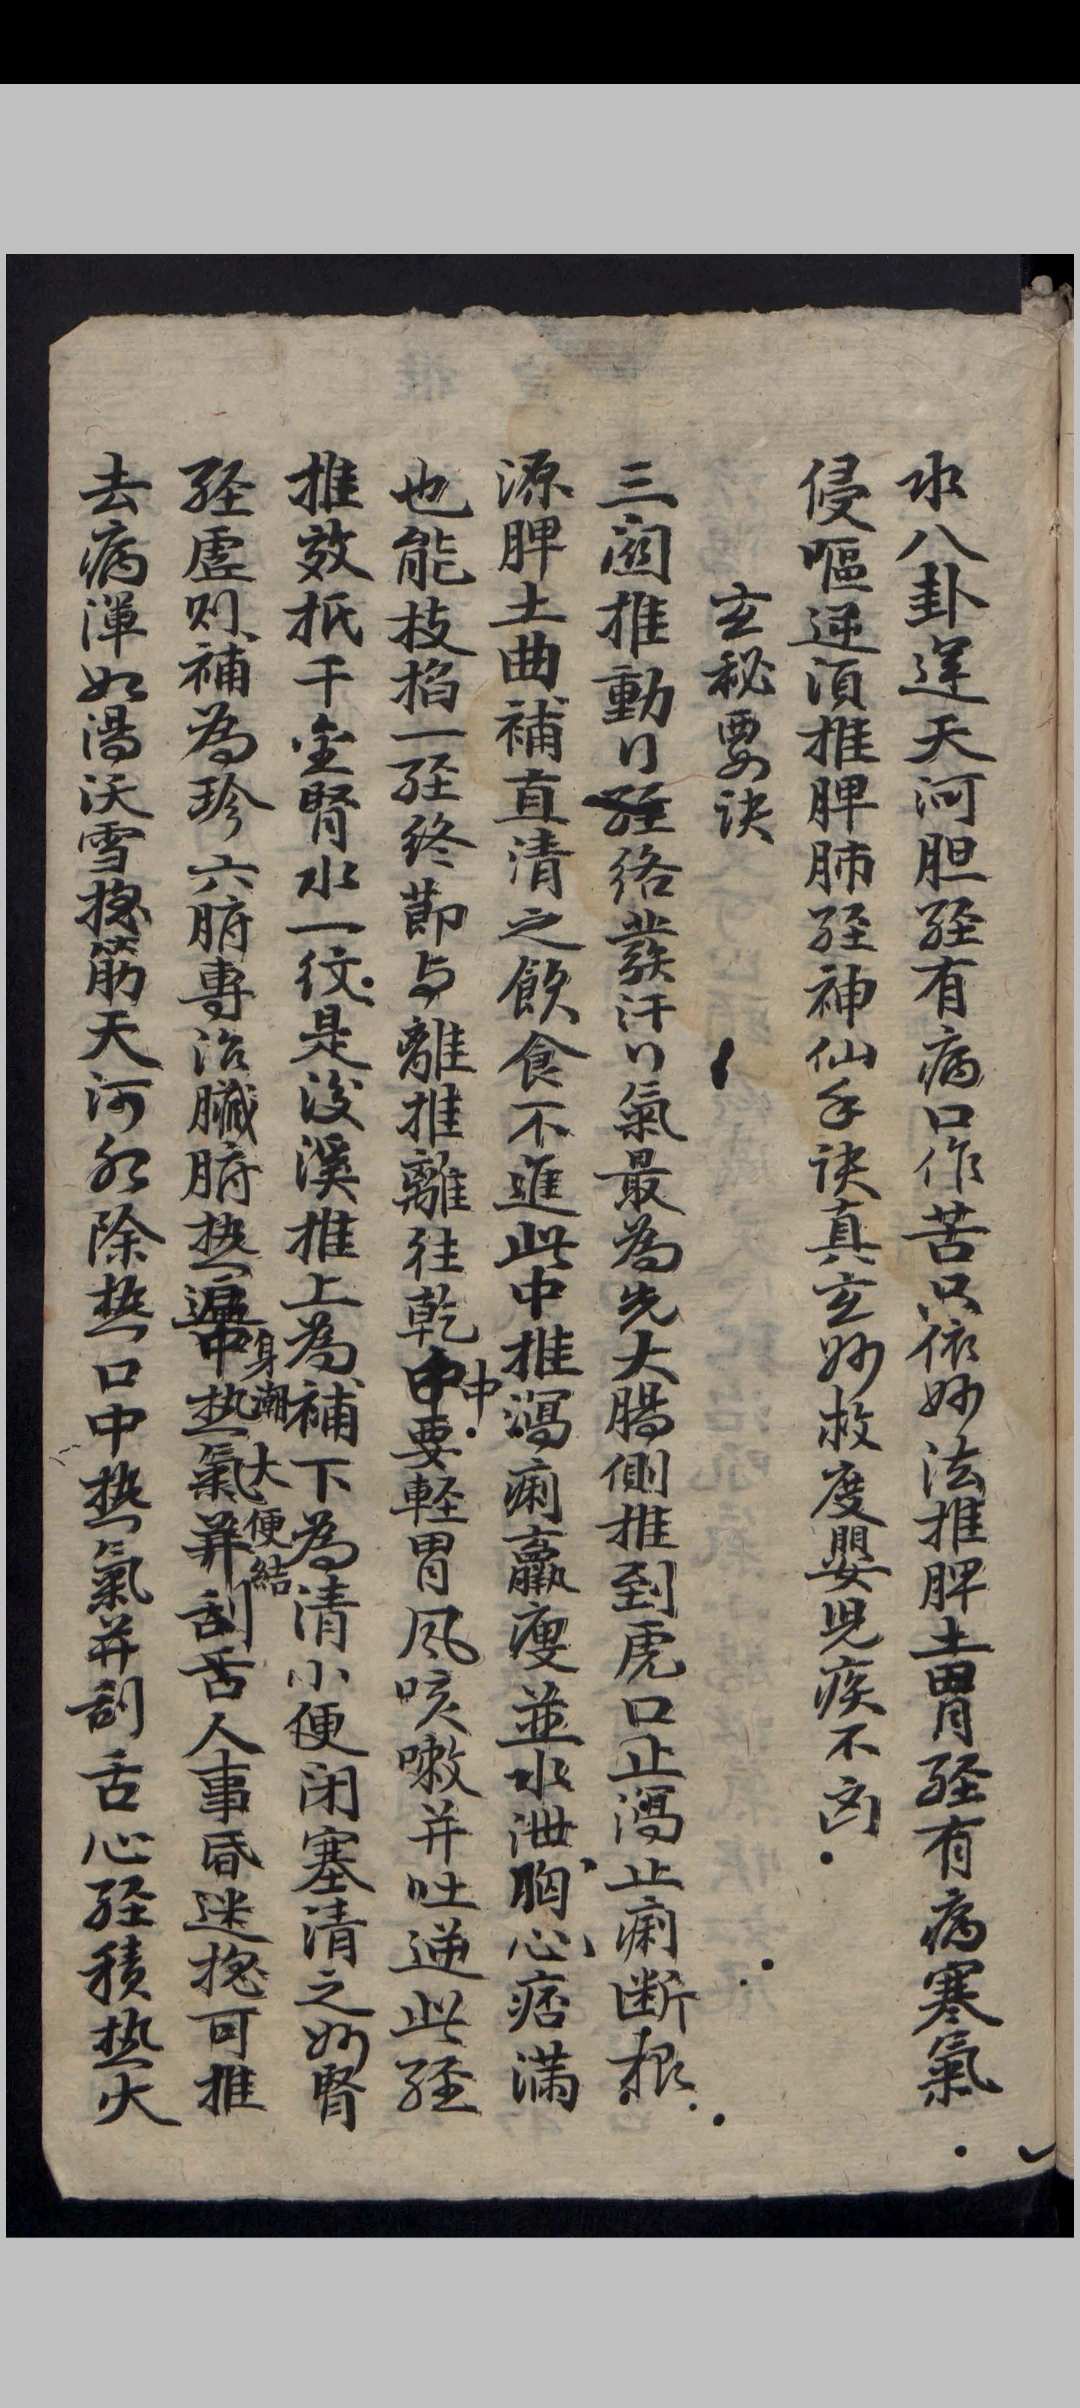 水八卦運天河胆経有病口作苦只依妙法推脾土胃経有病寒氣
侵嘔逆須推脾肺経神仙手訣真玄妙救度嬰児疾不凶
玄秘要訣
三関推動行経絡發汗行氣最為先大腸側推到虎口止瀉止痢断根
源脾土曲補直清之飲食不進此中推瀉痢羸瘦並水泄胸心痞滿
也能技掐一経終節与離推離往乾中中要軽胃风咳嗽并吐逆此経
推效抵千金腎水一纹是後溪推上為補下為清小便闭塞清之妙腎
経虚则補為珍六腑專治臟腑热遍中热氣并刮舌人事昏迷揔可推
身潮大便結
去病渾如湯沃雪揔筋天河水除热口中热氣并刮舌心経積热火